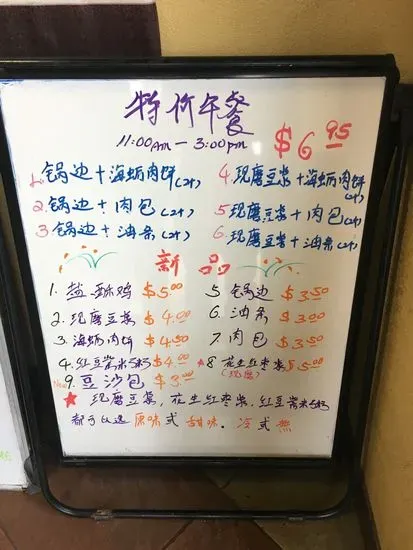 特价午餐
11:00AM — 3:00pm $6.95
1. 锅边+海蛎肉饼(2个) 4. 现磨豆浆+海蛎肉饼(2个)
2. 锅边+肉包(2个) 5. 现磨豆浆+肉包(2个)
3. 锅边+油条(2个) 6. 现磨豆浆+油条(2个)
新品
1. 盐酥鸡 $5.00 5. 锅边 $3.50
2. 现磨豆浆 $4.00 6. 油条 $3.00
3. 海蛎肉饼 $4.50 7. 肉包 $3.50
4. 红豆紫米粥 $4.00 ★8. 花生红枣浆 $5.00
(现磨)
New 9. 豆沙包 $3.00
★ 现磨豆浆, 花生红枣浆, 红豆紫米粥
都可以选 原味 或 甜味, 冷 或 热